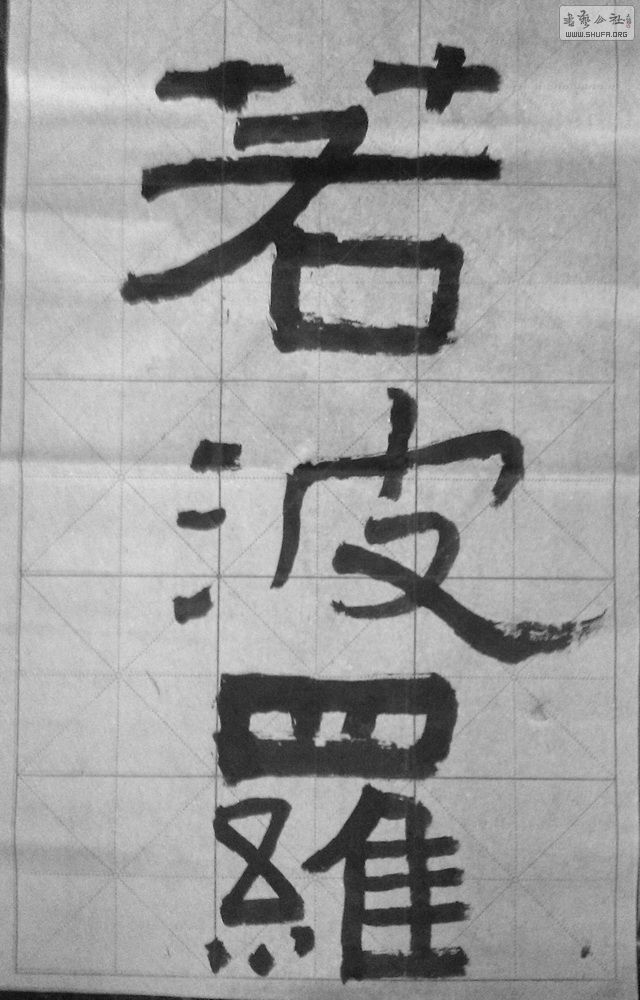 若波羅
書藝公社
WWW.SHUFA.ORG